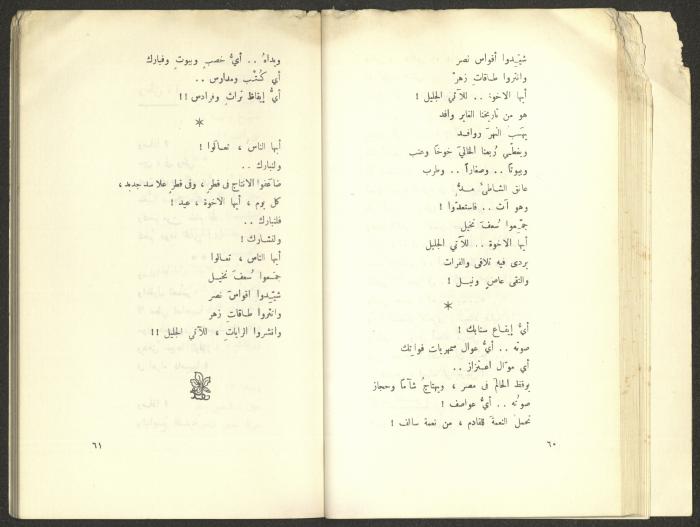 شيّدوا أقواس نصر
وانثروا طاقاتِ زهرْ
أيها الاخوة .. للآتي الجليل !
هو من تاريخنا الغابر وافد
يهَب النهرَ روافد
ويغطّي رَبعنا الخالي خوخًا وعنب
وبيوتًا .. وصغارًا .. وطرب
عانق الشاطئ مدٌّ
وهو آت .. فاستعدّوا !
جمّعوا سُعفَ نخيل
أيها الاخوة .. للآتي الجليل
بردى فيه تلاقى والفرات
والتقى عاصٍ ونيل !
*
أيُّ إيقاع سنابك !
صوتُه .. أيُّ عوال سمهريات فواتِك
أي موّال اعتزاز ..
يوقظ الحالمَ في مصر ، ويهتاجُ شآمًا وحجاز
صوتُه .. أيُّ عواصف !
تحملُ النعمةَ للقادم ، من نعمة سالف !
٦٠
ويداهُ .. أيُّ خصبٍ وبيوتٍ وفبارك
أي كُتْب ومدارس ..
أيُّ إيقاظ تراثٍ وفرادس !!
*
أيها الناسُ ، تعالَوا !
ولنبارك ..
ضاعفوا الانتاج في قطرٍ ، وفي قطرٍ علا سد جديد ،
كل يوم ، أيها الاخوة ، عيد !
فلنبارك ..
ولنشارك !
أيها الناس ، تعالوا
جمّعوا سُعفَ نخيل
شيّدوا اقواسَ نصر
وانثروا طاقاتِ زهر
وانشروا الراياتِ ، للآتي الجليل !!
٦١